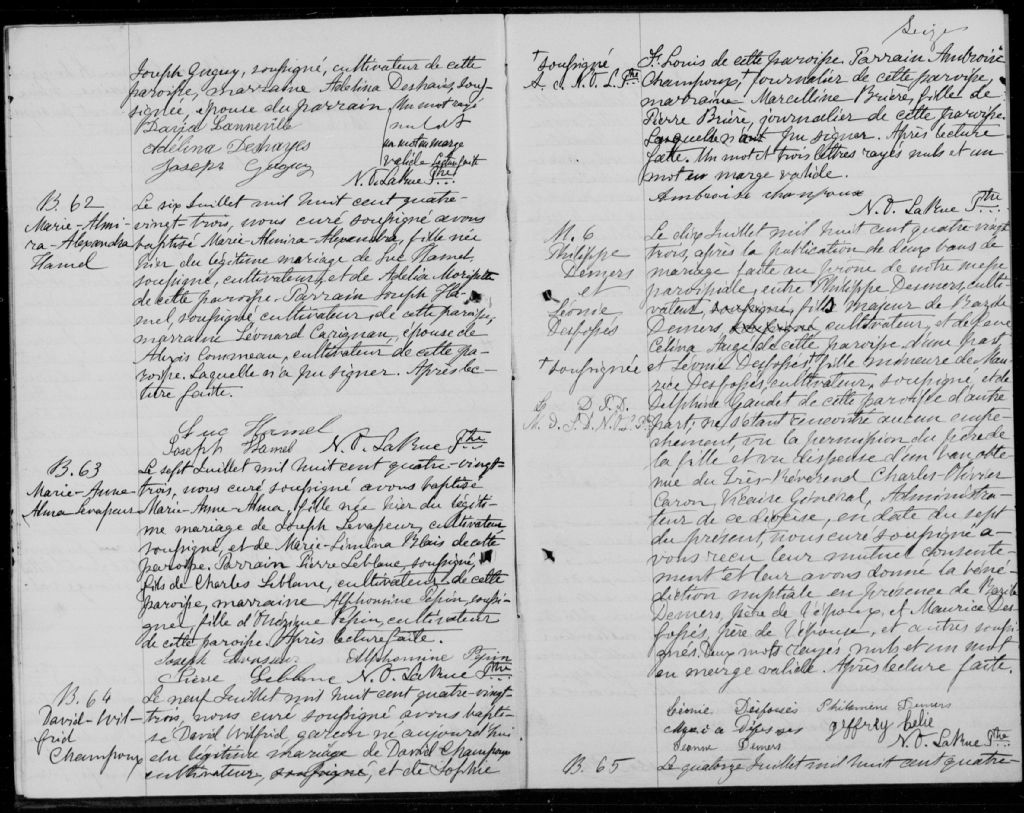 Joseph Guguy, soussigné, cultivateur de cette
paroisse, marraine Adelina Deshaies, sous-
signée, épouse du parrain. Un mot rayé
nul et
un mot en marge
valide lecture faite
Adélina Deshayes
Joseph Guguy
N. O. LaRue Ptre
B. 62
Marie-Almi-
ra-Alexandra
Hamel
Le six Juillet mil huit cent quatre-
vingt-trois, nous curé soussigné avons
baptisé Marie-Almira-Alexandra, fille née
hier du légitime mariage de Luc Hamel,
soussigné, cultivateur, et de Adelia
de cette paroisse. Parrain Joseph Ha-
mel, soussigné, cultivateur, de cette paroisse,
marraine Léonard Carignan, épouse de
Alexis Commeau, cultivateur de cette pa-
roisse. Laquelle n'a pu signer. Après lec-
ture faite.
Luc Hamel
Joseph Hamel N. O. LaRue Ptre
B. 63
Marie-Anne
Alma Levasseur
Le sept Juillet mil huit cent quatre-vingt-
trois, nous curé soussigné avons baptisé
Marie-Anne-Alma, fille née hier du légiti-
me mariage de Joseph Levasseur, cultivateur
soussigné, et de Marie-Limina Blais de cette
paroisse. Parrain Pierre Leblanc, soussigné,
fils de Charles Leblanc, cultivateur de cette
paroisse, marraine Alphonsine Pepin, soussi-
gnée, fille d'Onézime Pepin, cultivateur
de cette paroisse. Après lecture faite.
Joseph Alphonsine Pepin
Pierre Leblanc N. O. LaRue Ptre
B. 64
David-Wil-
frid
Champoux
Le neuf Juillet mil huit cent quatre-vingt-
trois, nous curé soussigné avons bapti-
sé David Wilfrid garçon né aujourd'hui
du légitime mariage de David Champoux
cultivateur, soussigné, et de Sophie
Seize
† soussigné
A. C. N. O. L. Ptre
St. Louis de cette paroisse. Parrain Ambroise
Champoux, † journalier de cette paroisse,
marraine Marcelline Brière, fille de
Pierre Brière, journalier de cette paroisse.
Laquelle n'a pu signer. Après lecture
faite. Un mot et trois lettres rayés nuls et un
mot en marge valide.
Ambroise Champoux
N. O. LaRue Ptre
M. 6
Philippe
Demers
et
Léonie
Desfossés
† soussignée
Le dix Juillet mil huit cent quatre vingt
trois, après la publication de deux bans de
mariage faite au prône de notre messe
paroissiale, entre Philippe Demers, culti-
vateur, soussigné, fils majeur de Bazile
Demers, soussigné, cultivateur, et de feue
Célina Augé de cette paroisse d'une part,
et Léonie Desfossés, † fille mineure de Mau-
rice Desfossés, cultivateur, soussigné, et de
Delphine Gaudet de cette paroisse d'autre
part; ne s'étant rencontré aucun empê-
chement, vu la permission du père de
la fille et vu dispense d'un ban obte-
nue du Très-Révérend Charles Olivier
Caron, Vicaire Général, Administra-
teur de ce diocèse, en date du sept
du présent, nous curé soussigné a-
vons reçu leur mutuel consente-
ment et leur avons donné la béné-
diction nuptiale en présence de Bazile
Demers, père de l'époux, et Maurice Des-
fossés, père de l'épouse, et autres soussi-
gnés. Deux mots rayés nuls et un mot
en marge valide. Après lecture faite.
Léonie Desfossés Philomène Demers
N. O. LaRue Ptre
Demers
B. 65
Le quatorze Juillet mil huit cent quatre-